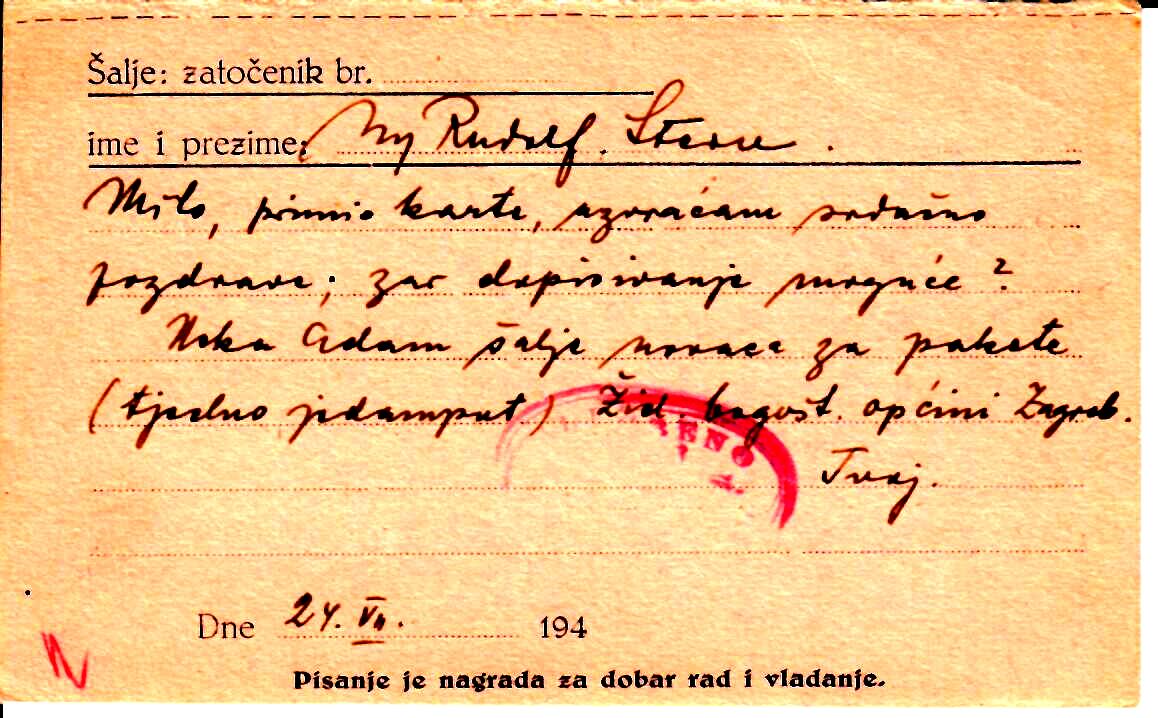 Šalje: zatočenik br.
ime i prezime: Rudolf Stern.
Milo, primio karte, uzvraćam srdačno
pozdrave; zar dopisivanje moguće?
Neka Adam šalje novace za pakete
(tjedno jedamput) Žid. bogošt. općini Zagreb.
Tvoj.
Dne 24. VII. 194
Pisanje je nagrada za dobar rad i vladanje.